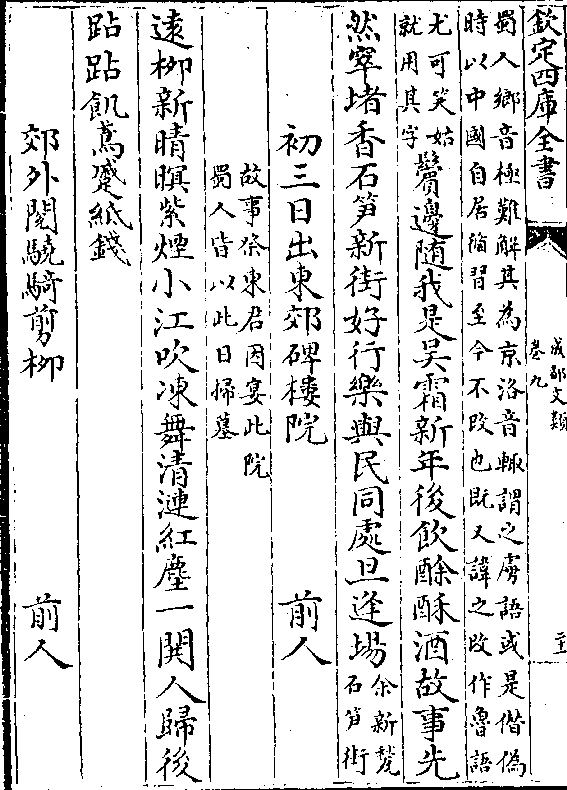 欽定四庫全書
成都文類
卷九
二十
蜀人鄉音極難解其為京洛音輒謂之虜語或是僭偽
時以中國自居循習至今不改也既又諱之改作魯語
尤可笑姑
就用其字
鬢邊隨我是吳霜新年後飲酴酥酒故事先
然窣堵香石笋新街好行樂與民同處且逢場余新甃
石笋街
初三日出東郊碑樓院 前人
故事祭東君因宴此院
蜀人皆以此日掃墓
遠柳新晴暝紫煙小江吹凍舞清漣紅塵一閧人歸後
跕跕飢鳶蹙紙錢
郊外閱驍騎剪柳 前人